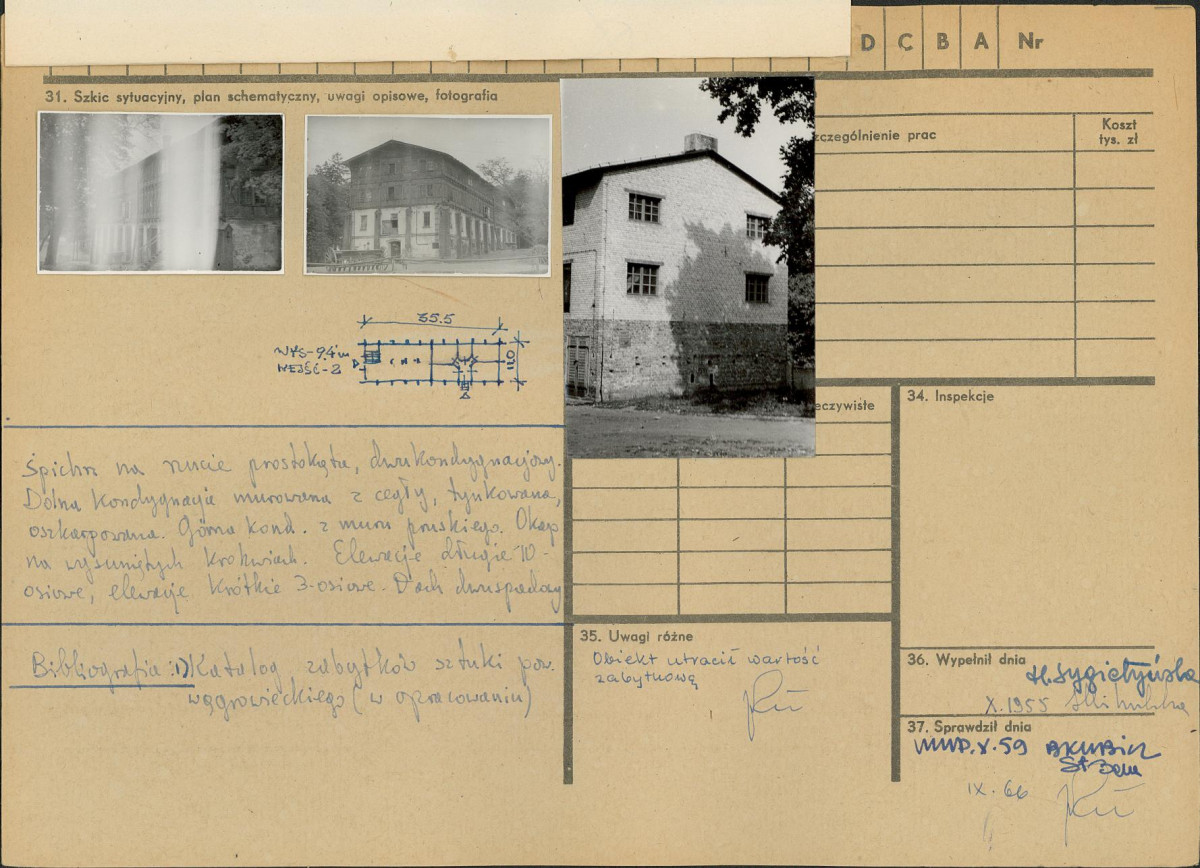 D C B A Nr
31. Szkic sytuacyjny, plan schematyczny, uwagi opisowe, fotografia
zczególnienie prac
Koszt
tys. zł
35.5
WYS-9.4m
WEJŚĆ-2
11.0
Śpichrz na rzucie prostokąta, dwukondygnacyjny.
Dolna kondygnacja murowana z cegły, tynkowana,
oszkarpowana. Górna kond. z muru pruskiego. Okap
na wysuniętych krokwiach. Elewacje długie 10-
osiowe, elewacje krótkie 3-osiowe. Dach dwuspadowy
Bibliografia: 1) Katalog zabytków sztuki pow.
wągrowieckiego (w opracowaniu)
eczywiste
34. Inspekcje
35. Uwagi różne
Obiekt utracił wartość
zabytkową
36. Wypełnił dnia
H. Sygietyńska
X. 1955
37. Sprawdził dnia
X.59
IX. 66